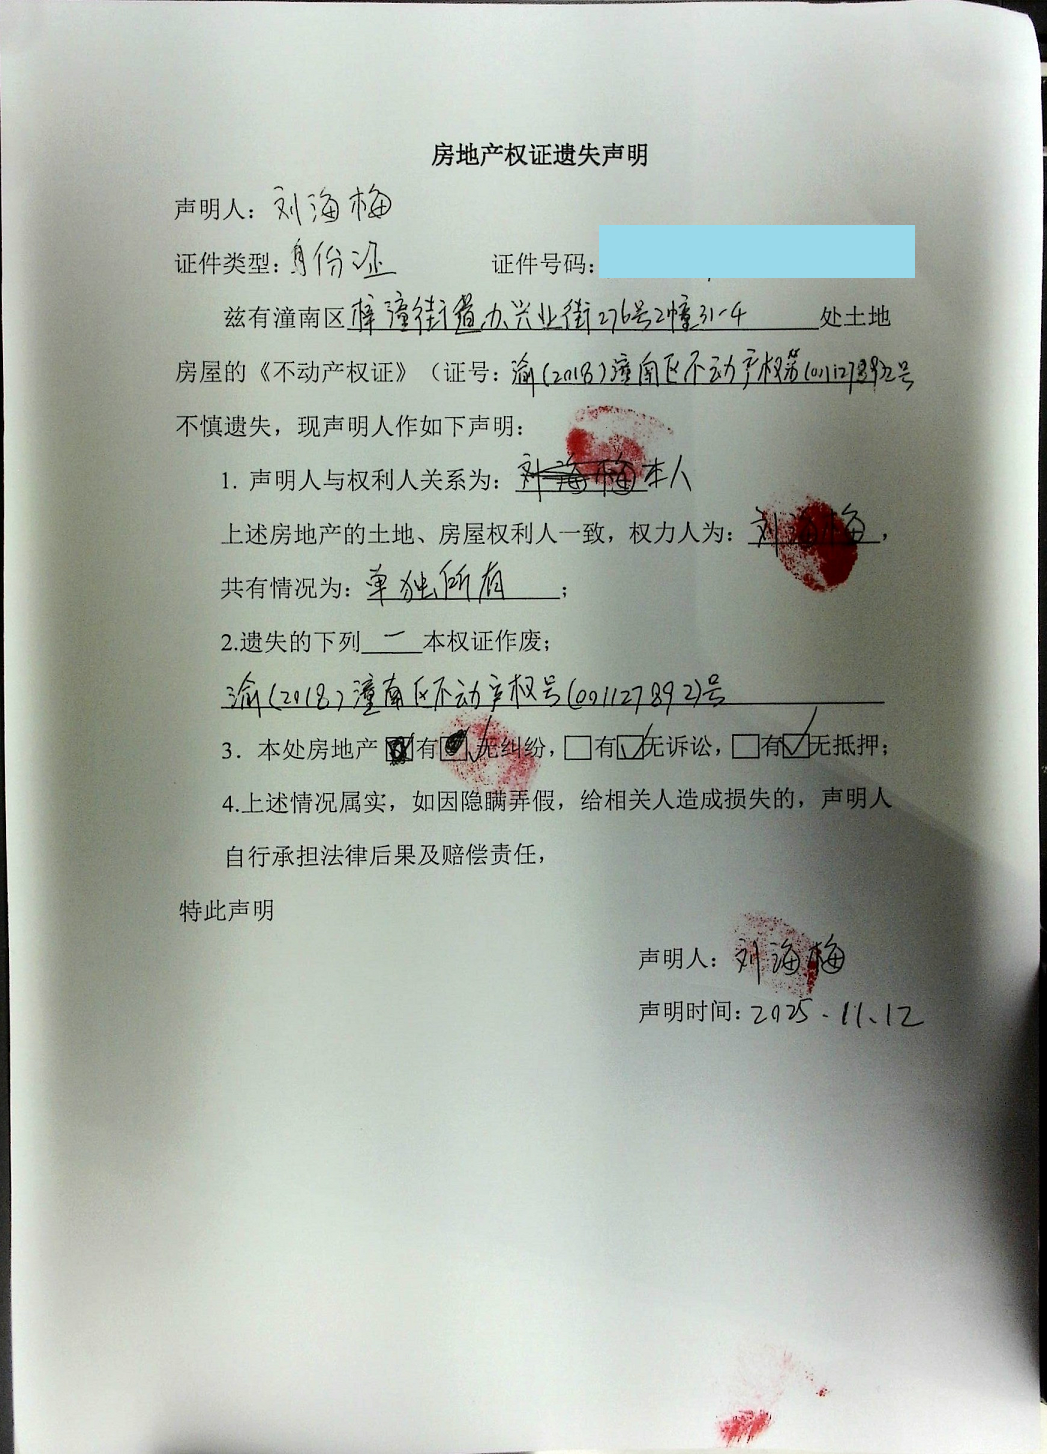 房地产权证遗失声明
声明人：刘海梅
证件类型：身份证 证件号码：
兹有潼南区梓潼街道办兴业街276号2幢31-4处土地
房屋的《不动产权证》（证号：渝(2018)潼南区不动产权第(001127892号
不慎遗失，现声明人作如下声明：
1. 声明人与权利人关系为：刘海梅本人
上述房地产的土地、房屋权利人一致，权力人为：刘海梅，
共有情况为：单独所有；
2.遗失的下列一本权证作废；
渝(2018)潼南区不动产权号(001127892)号
3．本处房地产☑有☑无纠纷，☐有☑无诉讼，☐有☑无抵押；
4.上述情况属实，如因隐瞒弄假，给相关人造成损失的，声明人
自行承担法律后果及赔偿责任，
特此声明
声明人：刘海梅
声明时间：2025.11.12